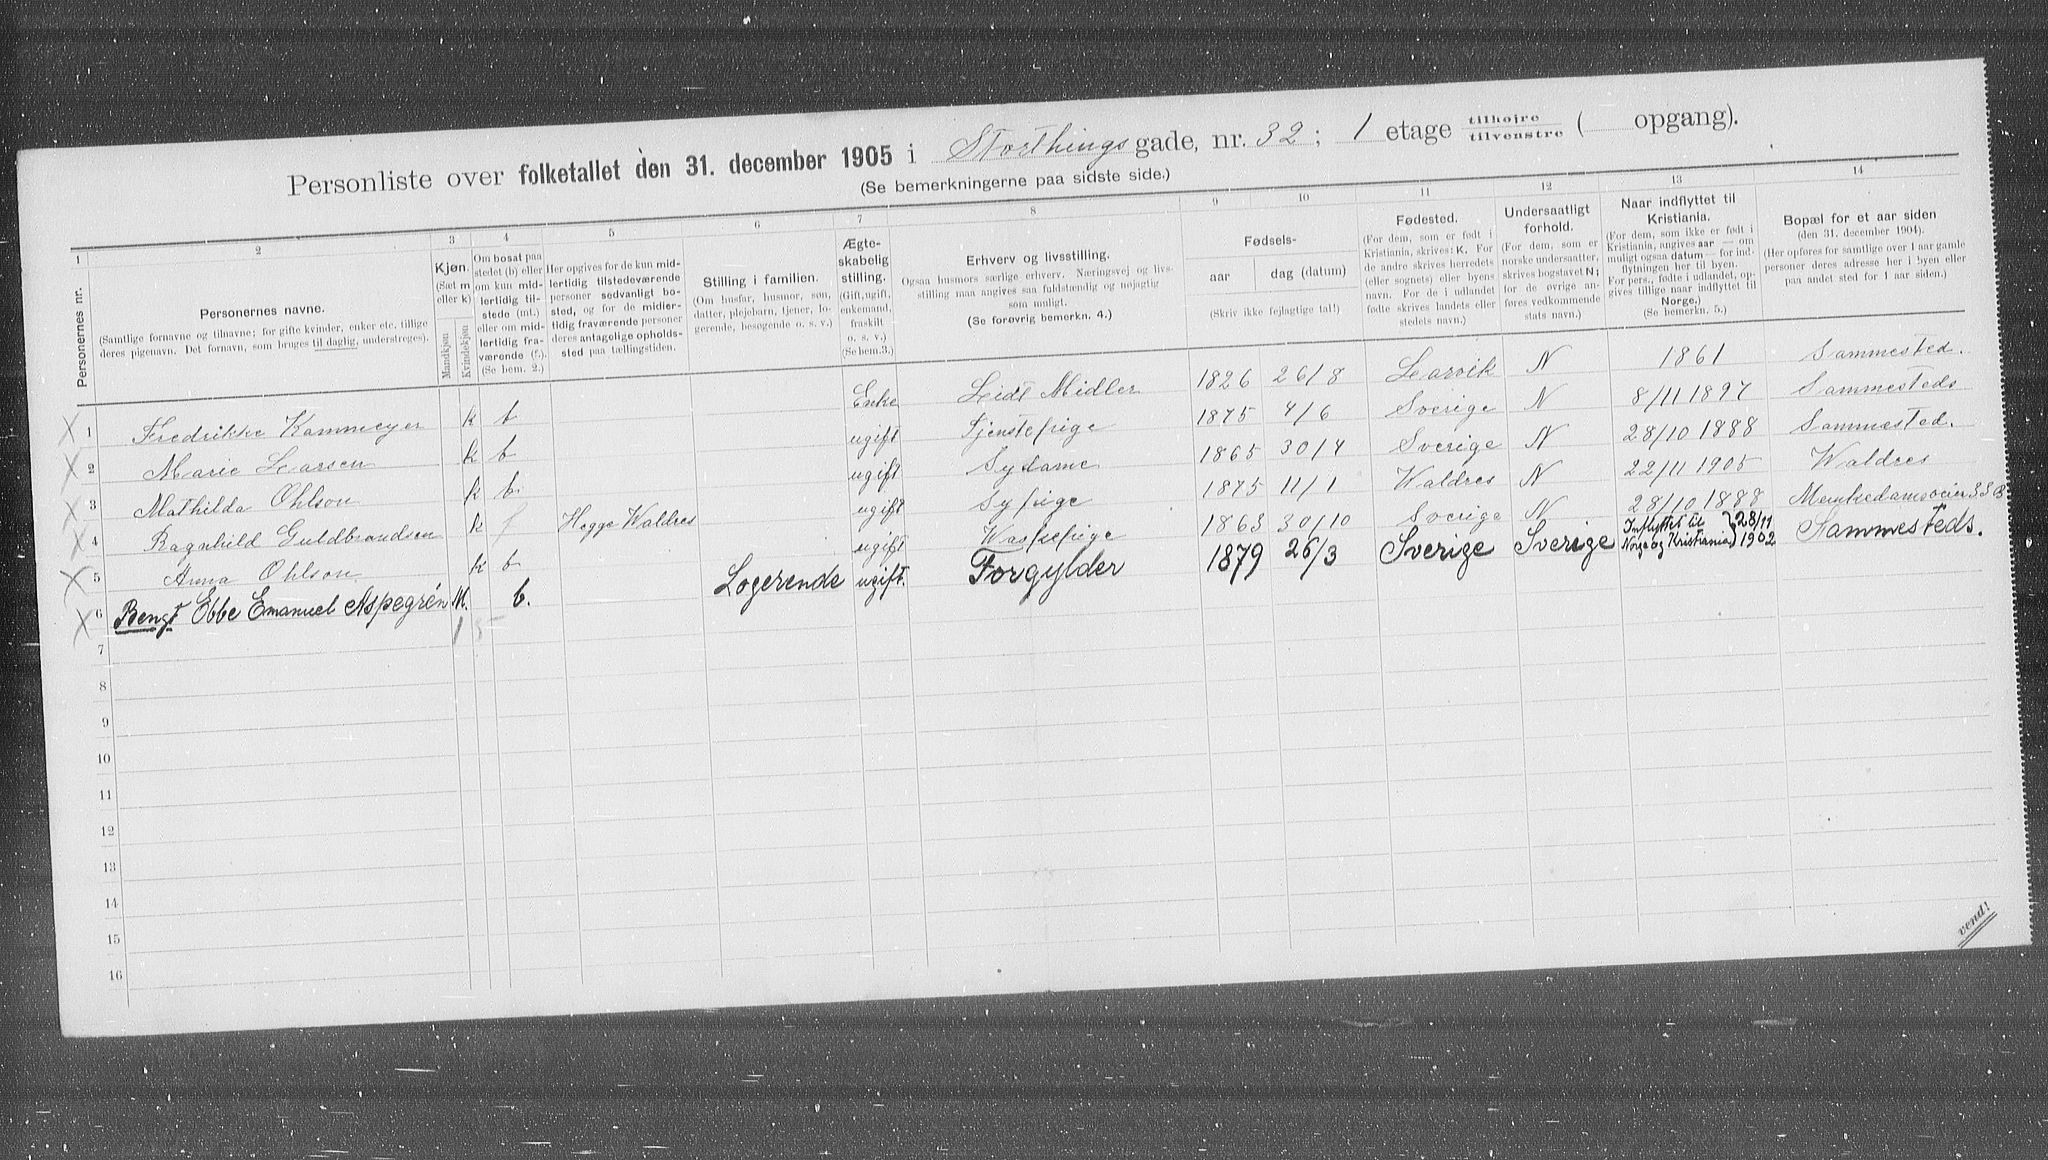 Personliste over folketallet den 31. december 1905 i Storthings gade, nr. 32; 1 etage tilhøjre tilvenstre ( opgang).
(Se bemerkningerne paa sidste side.)
1 2 3 4 5 6 7 8 9 10 11 12 13 14
Personernes nr.
Personernes navne.
(Samtlige fornavne og tilnavne; for gifte kvinder, enker etc. tillige
deres pigenavn. Det fornavn, som bruges til daglig, understreges).
Kjøn.
(Sæt m
eller k)
Mandkjøn
Kvindekjøn
Om bosat paa
stedet (b) eller
om kun mid-
lertidig til-
stede (mt.)
eller om mid-
lertidig fra-
værende (f.)
(Se bem. 2.)
Her opgives for de kun mid-
lertidig tilstedeværende
personer sedvanligt bo-
sted, og for de midler-
tidig fraværende personer
deres antagelige opholds-
sted paa tællingstiden.
Stilling i familien.
(Om husfar, husmor, søn,
datter, plejebarn, tjener, lo-
gerende, besøgende o. s. v.)
Ægte-
skabelig
stilling.
(Gift, ugift,
enkemand,
fraskilt
o. s. v.)
(Se bem.3.)
Erhverv og livsstilling.
Ogsaa husmors særlige erhverv. Næringsvej og livs-
stilling maa angives saa fuldstændig og nøjagtig
som muligt.
(Se forøvrig bemerkn. 4.)
Fødsels-
aar
dag (datum)
(Skriv ikke fejlagtige tal!)
Fødested.
(For dem, som er født i
Kristiania, skrives: K. For
de andre skrives herredets
(eller sognets) eller byens
navn. For de i udlandet
fødte skrives landets eller
stedets navn.)
Undersaatligt
forhold.
(For dem, som er
norske undersaatter,
skrives bogstavet N;
for de øvrige an-
føres vedkommende
stats navn.)
Naar indflyttet til
Kristiania.
(For dem, som ikke er født i
Kristiania, angives aar — om
muligt ogsaa datum — for ind-
flytningen her til byen.
For pers., fødte i udlandet, op-
gives tillige naar indflyttet til
Norge.)
(Se bemerkn. 5.)
Bopæl for et aar siden
(den 31. december 1904).
(Her opføres for samtlige over 1 aar gamle
personer deres adresse her i byen eller
paa andet sted for 1 aar siden.)
X 1 Fredrikke Kammeyer k b Enke Lidt Midler 1826 26/8 Larvik N 1861 Sammested.
X 2 Marie Larsen k b ugift Tjenstepige 1875 4/6 Sverige N 8/11 1897 Sammesteds
X 3 Mathilda Ohlson k b ugift Sydame 1865 30/4 Sverige N 28/10 1888 Sammested.
X 4 Ragnhild Guldbrandsen k f Hegge Waldres ugift Sypige 1875 11/1 Waldres N 22/11 1905 Waldres
X 5 Anna Ohlson k b ugift Waskepige 1863 30/10 Sverige N 28/10 1888 Munkedamsveien 33B
X 6 Bengt Ebbe Emanuel Aspegrén M. b. Logerende ugift. Forgylder 1879 26/3 Sverige Sverige Inflyttet til Norge og Kristiania } 28/11 1902 Sammesteds.
1 5
7
8
9
10
11
12
13
14
15
16
vend!